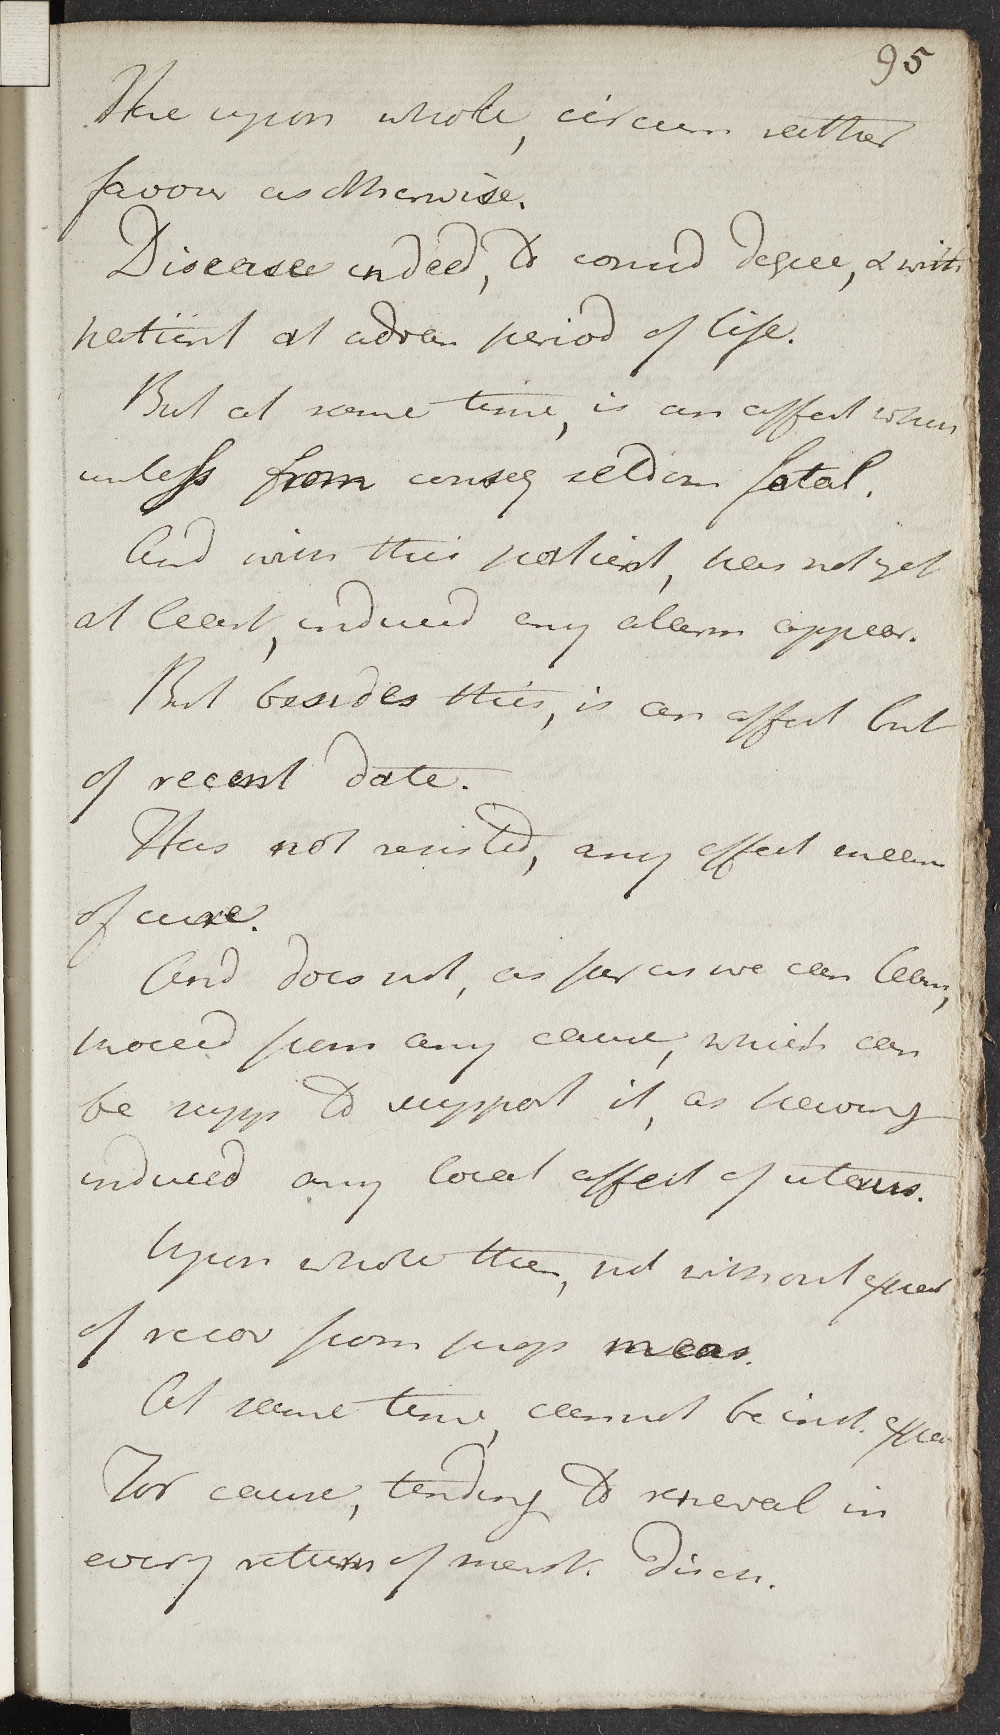 95
Here upon whole, circum rather
favour as otherwise.
Disease indeed, to consid degree, & with
patient at advan period of life.
But at same time, is an affect when
unless from conseq seldom fatal.
And with this patient, has not yet
at least, induced any alarm appear.
But besides this, is an affect but
of recent date.
Has not resisted, any effect means
of cure.
And does not, as far as we can learn,
proceed from any cause, which can
be supp to support it, as having
induced any local affect of uterus.
Upon whole then, not without expect
of recov from props meas.
At same time, cannot be inst. expec
For cause, tending to renewal in
every return of menst. disch.